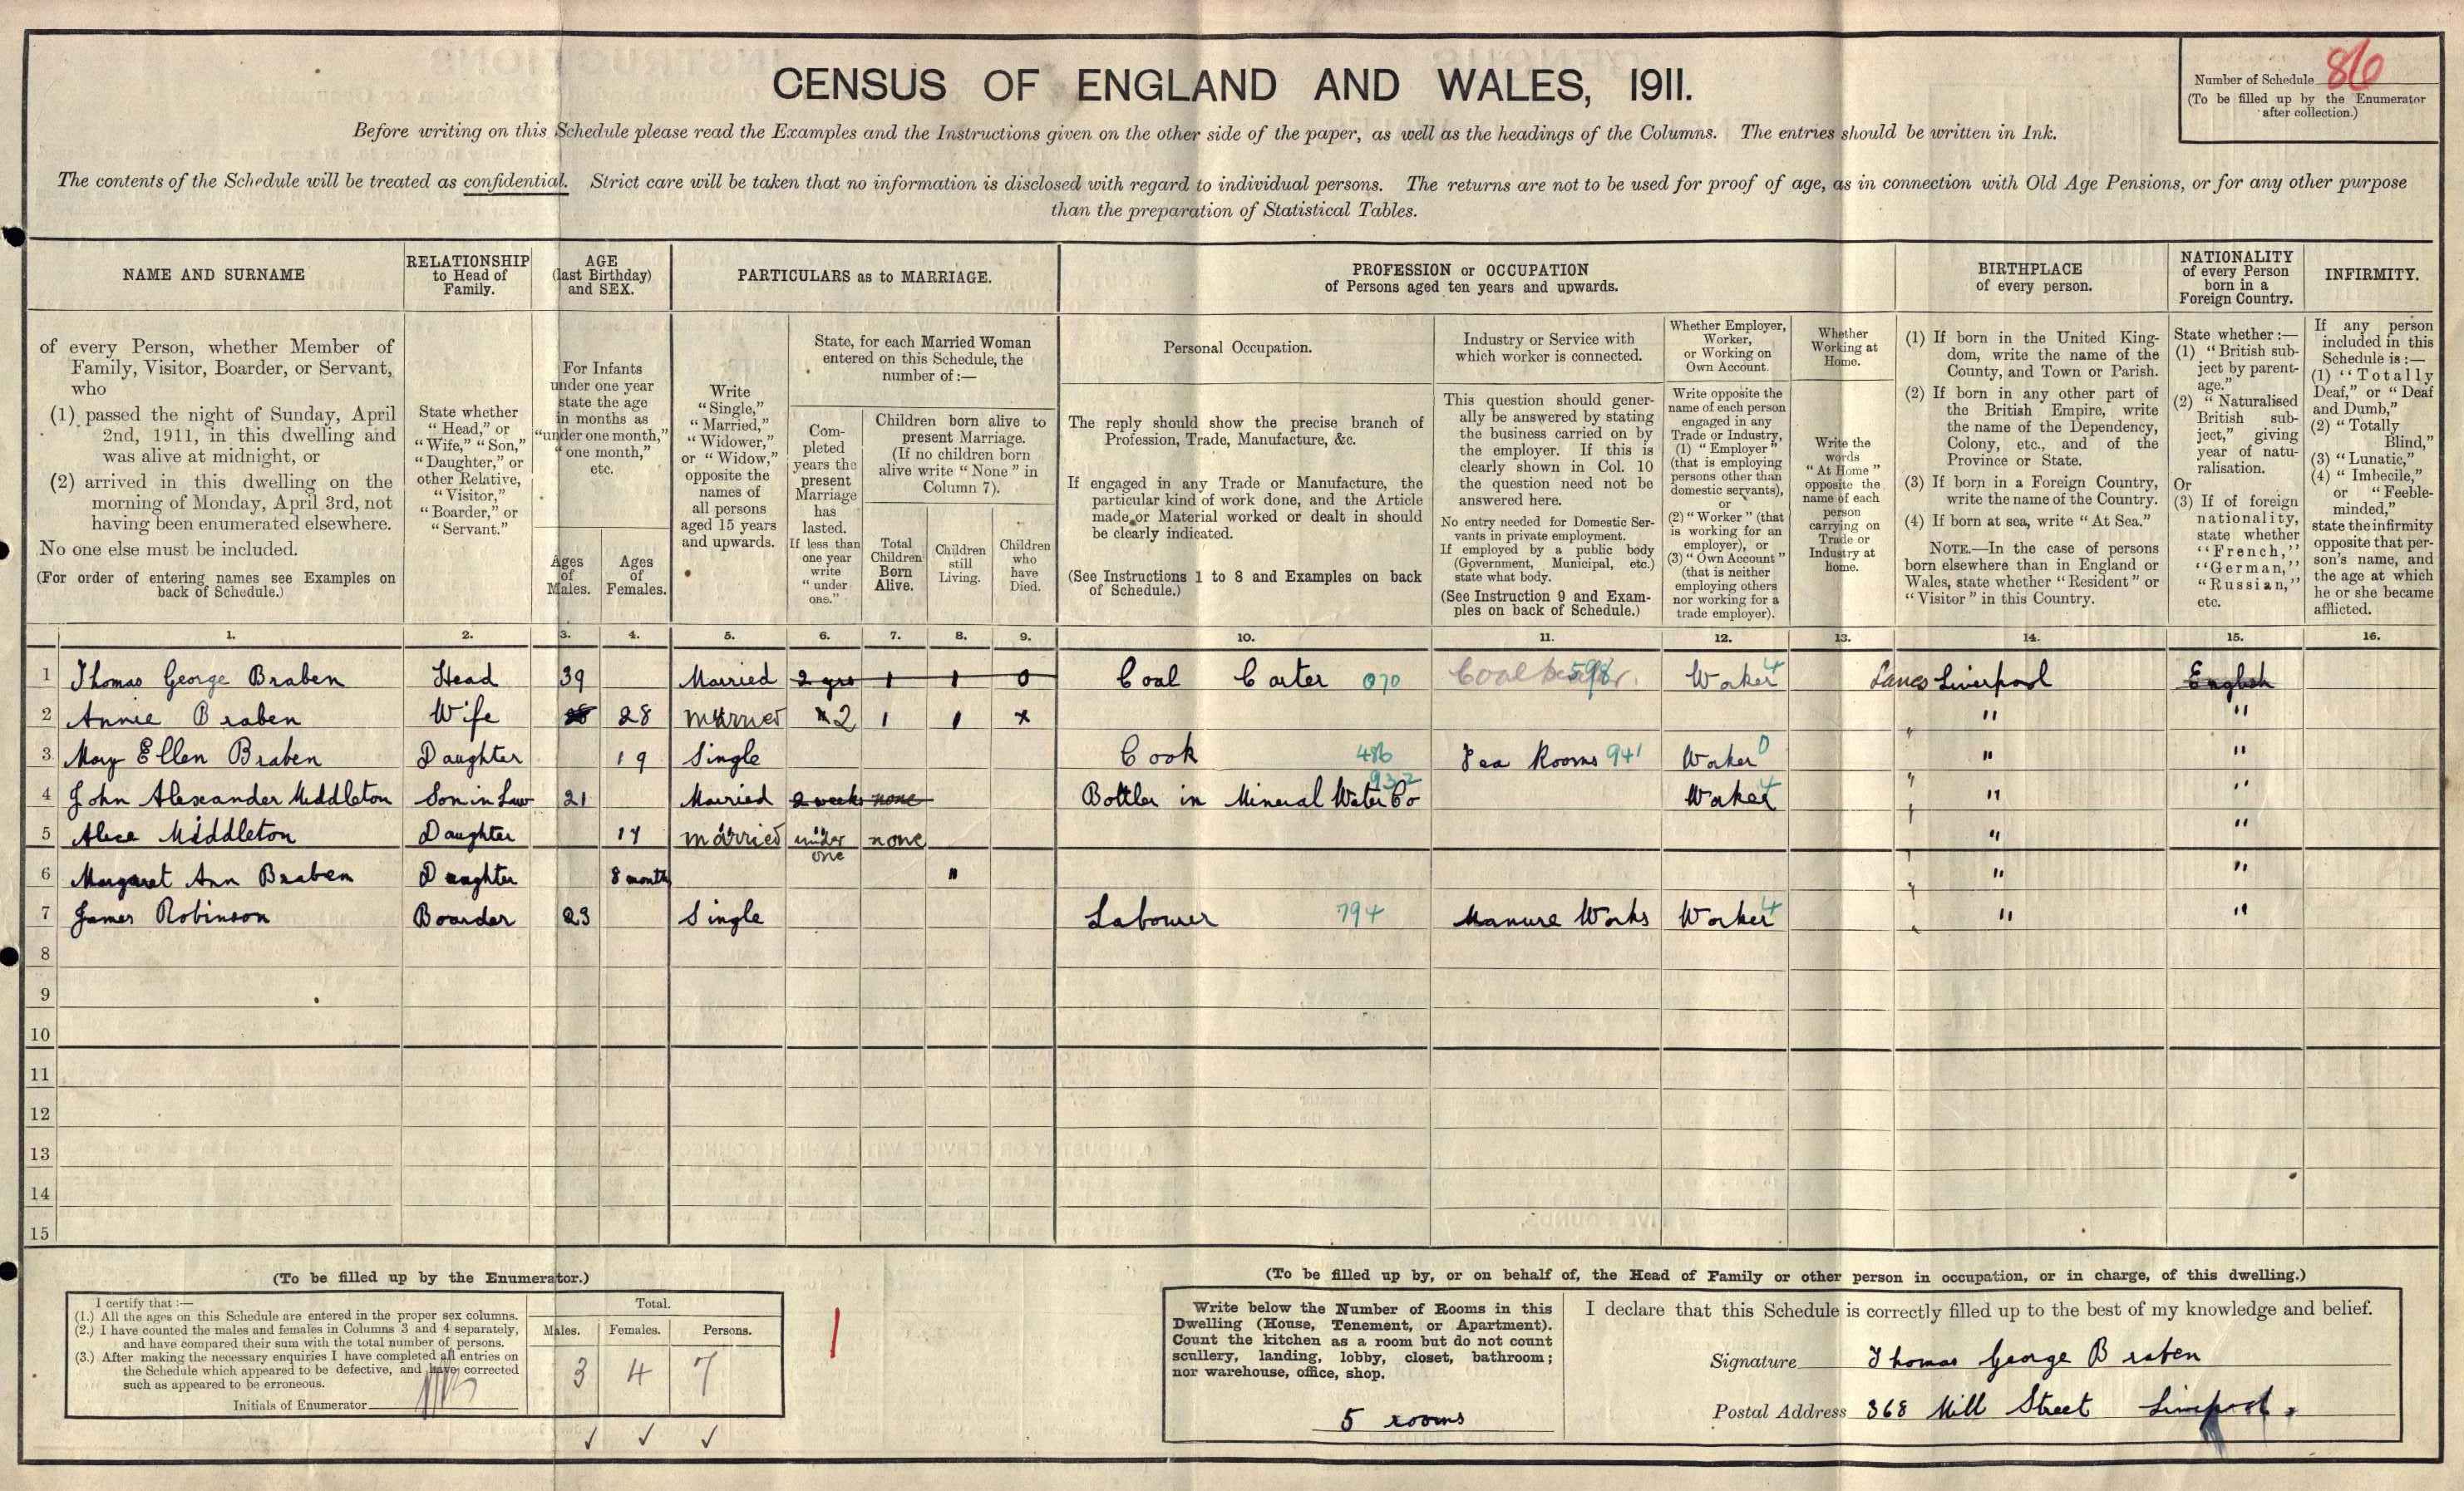 CENSUS OF ENGLAND AND WALES, 1911.
Number of Schedule 86
(To be filled up by the Enumerator
after collection.)
Before writing on this Schedule please read the Examples and the Instructions given on the other side of the paper, as well as the headings of the Columns. The entries should be written in Ink.
The contents of the Schedule will be treated as confidential. Strict care will be taken that no information is disclosed with regard to individual persons. The returns are not to be used for proof of age, as in connection with Old Age Pensions, or for any other purpose
than the preparation of Statistical Tables.
NAME AND SURNAME
of every Person, whether Member of
Family, Visitor, Boarder, or Servant,
who
(1) passed the night of Sunday, April
2nd, 1911, in this dwelling and
was alive at midnight, or
(2) arrived in this dwelling on the
morning of Monday, April 3rd, not
having been enumerated elsewhere.
No one else must be included.
(For order of entering names see Examples on
back of Schedule.)
RELATIONSHIP
to Head of
Family.
State whether
"Head," or
"Wife," "Son,"
"Daughter," or
other Relative,
"Visitor,"
"Boarder," or
"Servant."
AGE
(last Birthday)
and SEX.
For Infants
under one year
state the age
in months as
"under one month,"
"one month,"
etc.
Ages
of
Males.
Ages
of
Females.
PARTICULARS as to MARRIAGE.
Write
"Single,"
"Married,"
"Widower,"
or "Widow,"
opposite the
names of
all persons
aged 15 years
and upwards.
State, for each Married Woman
entered on this Schedule, the
number of:—
Com-
pleted
years the
present
Marriage
has
lasted.
If less than
one year
write
"under
one."
Children born alive to
present Marriage.
(If no children born
alive write "None" in
Column 7).
Total
Children
Born
Alive.
Children
still
Living.
Children
who
have
Died.
PROFESSION or OCCUPATION
of Persons aged ten years and upwards.
Personal Occupation.
The reply should show the precise branch of
Profession, Trade, Manufacture, &c.
If engaged in any Trade or Manufacture, the
particular kind of work done, and the Article
made or Material worked or dealt in should
be clearly indicated.
(See Instructions 1 to 8 and Examples on back
of Schedule.)
Industry or Service with
which worker is connected.
This question should gener-
ally be answered by stating
the business carried on by
the employer. If this is
clearly shown in Col. 10
the question need not be
answered here.
No entry needed for Domestic Ser-
vants in private employment.
If employed by a public body
(Government, Municipal, etc.)
state what body.
(See Instruction 9 and Exam-
ples on back of Schedule.)
Whether Employer,
Worker,
or Working on
Own Account.
Write opposite the
name of each person
engaged in any
Trade or Industry,
(1) "Employer"
(that is employing
persons other than
domestic servants),
or
(2) "Worker" (that
is working for an
employer), or
(3) "Own Account"
(that is neither
employing others
nor working for a
trade employer).
Whether
Working at
Home.
Write the
words
"At Home"
opposite the
name of each
person
carrying on
Trade or
Industry at
home.
BIRTHPLACE
of every person.
(1) If born in the United King-
dom, write the name of the
County, and Town or Parish.
(2) If born in any other part of
the British Empire, write
the name of the Dependency,
Colony, etc., and of the
Province or State.
(3) If born in a Foreign Country,
write the name of the Country.
(4) If born at sea, write "At Sea."
NOTE.—In the case of persons
born elsewhere than in England or
Wales, state whether "Resident" or
"Visitor" in this Country.
NATIONALITY
of every Person
born in a
Foreign Country.
State whether:—
(1) "British sub-
ject by parent-
age."
(2) "Naturalised
British sub-
ject," giving
year of natu-
ralisation.
Or
(3) If of foreign
nationality,
state whether
"French,"
"German,"
"Russian,"
etc.
INFIRMITY.
If any person
included in this
Schedule is:—
(1) "Totally
Deaf," or "Deaf
and Dumb,"
(2) "Totally
Blind,"
(3) "Lunatic,"
(4) "Imbecile,"
or "Feeble-
minded,"
state the infirmity
opposite that per-
son's name, and
the age at which
he or she became
afflicted.
1. 2. 3. 4. 5. 6. 7. 8. 9. 10. 11. 12. 13. 14. 15. 16.
1 Thomas George Braben Head 39 Married 2 yrs 1 1 0 Coal Carter 070 598 Worker 4 Lancs Liverpool English
2 Annie Braben Wife 28 Married 2 1 1 x " "
3 Mary Ellen Braben Daughter 19 Single Cook 486 Tea Rooms 941 Worker 0 " "
4 John Alexander Middleton Son in Law 21 Married 2 weeks none Bottler in Mineral Water Co 932 Worker 4 " "
5 Alice Middleton Daughter 17 married under one none " "
6 Margaret Ann Braben Daughter 8 month " " "
7 James Robinson Boarder 23 Single Labourer 794 Manure Works Worker 4 " "
8
9
10
11
12
13
14
15
(To be filled up by the Enumerator.)
I certify that:—
(1.) All the ages on this Schedule are entered in the proper sex columns.
(2.) I have counted the males and females in Columns 3 and 4 separately,
and have compared their sum with the total number of persons.
(3.) After making the necessary enquiries I have completed all entries on
the Schedule which appeared to be defective, and have corrected
such as appeared to be erroneous.
Initials of Enumerator
Total.
Males. Females. Persons.
3 4 7
(To be filled up by, or on behalf of, the Head of Family or other person in occupation, or in charge, of this dwelling.)
Write below the Number of Rooms in this
Dwelling (House, Tenement, or Apartment).
Count the kitchen as a room but do not count
scullery, landing, lobby, closet, bathroom;
nor warehouse, office, shop.
5 rooms
I declare that this Schedule is correctly filled up to the best of my knowledge and belief.
Signature Thomas George Braben
Postal Address 368 Mill Street Liverpool.